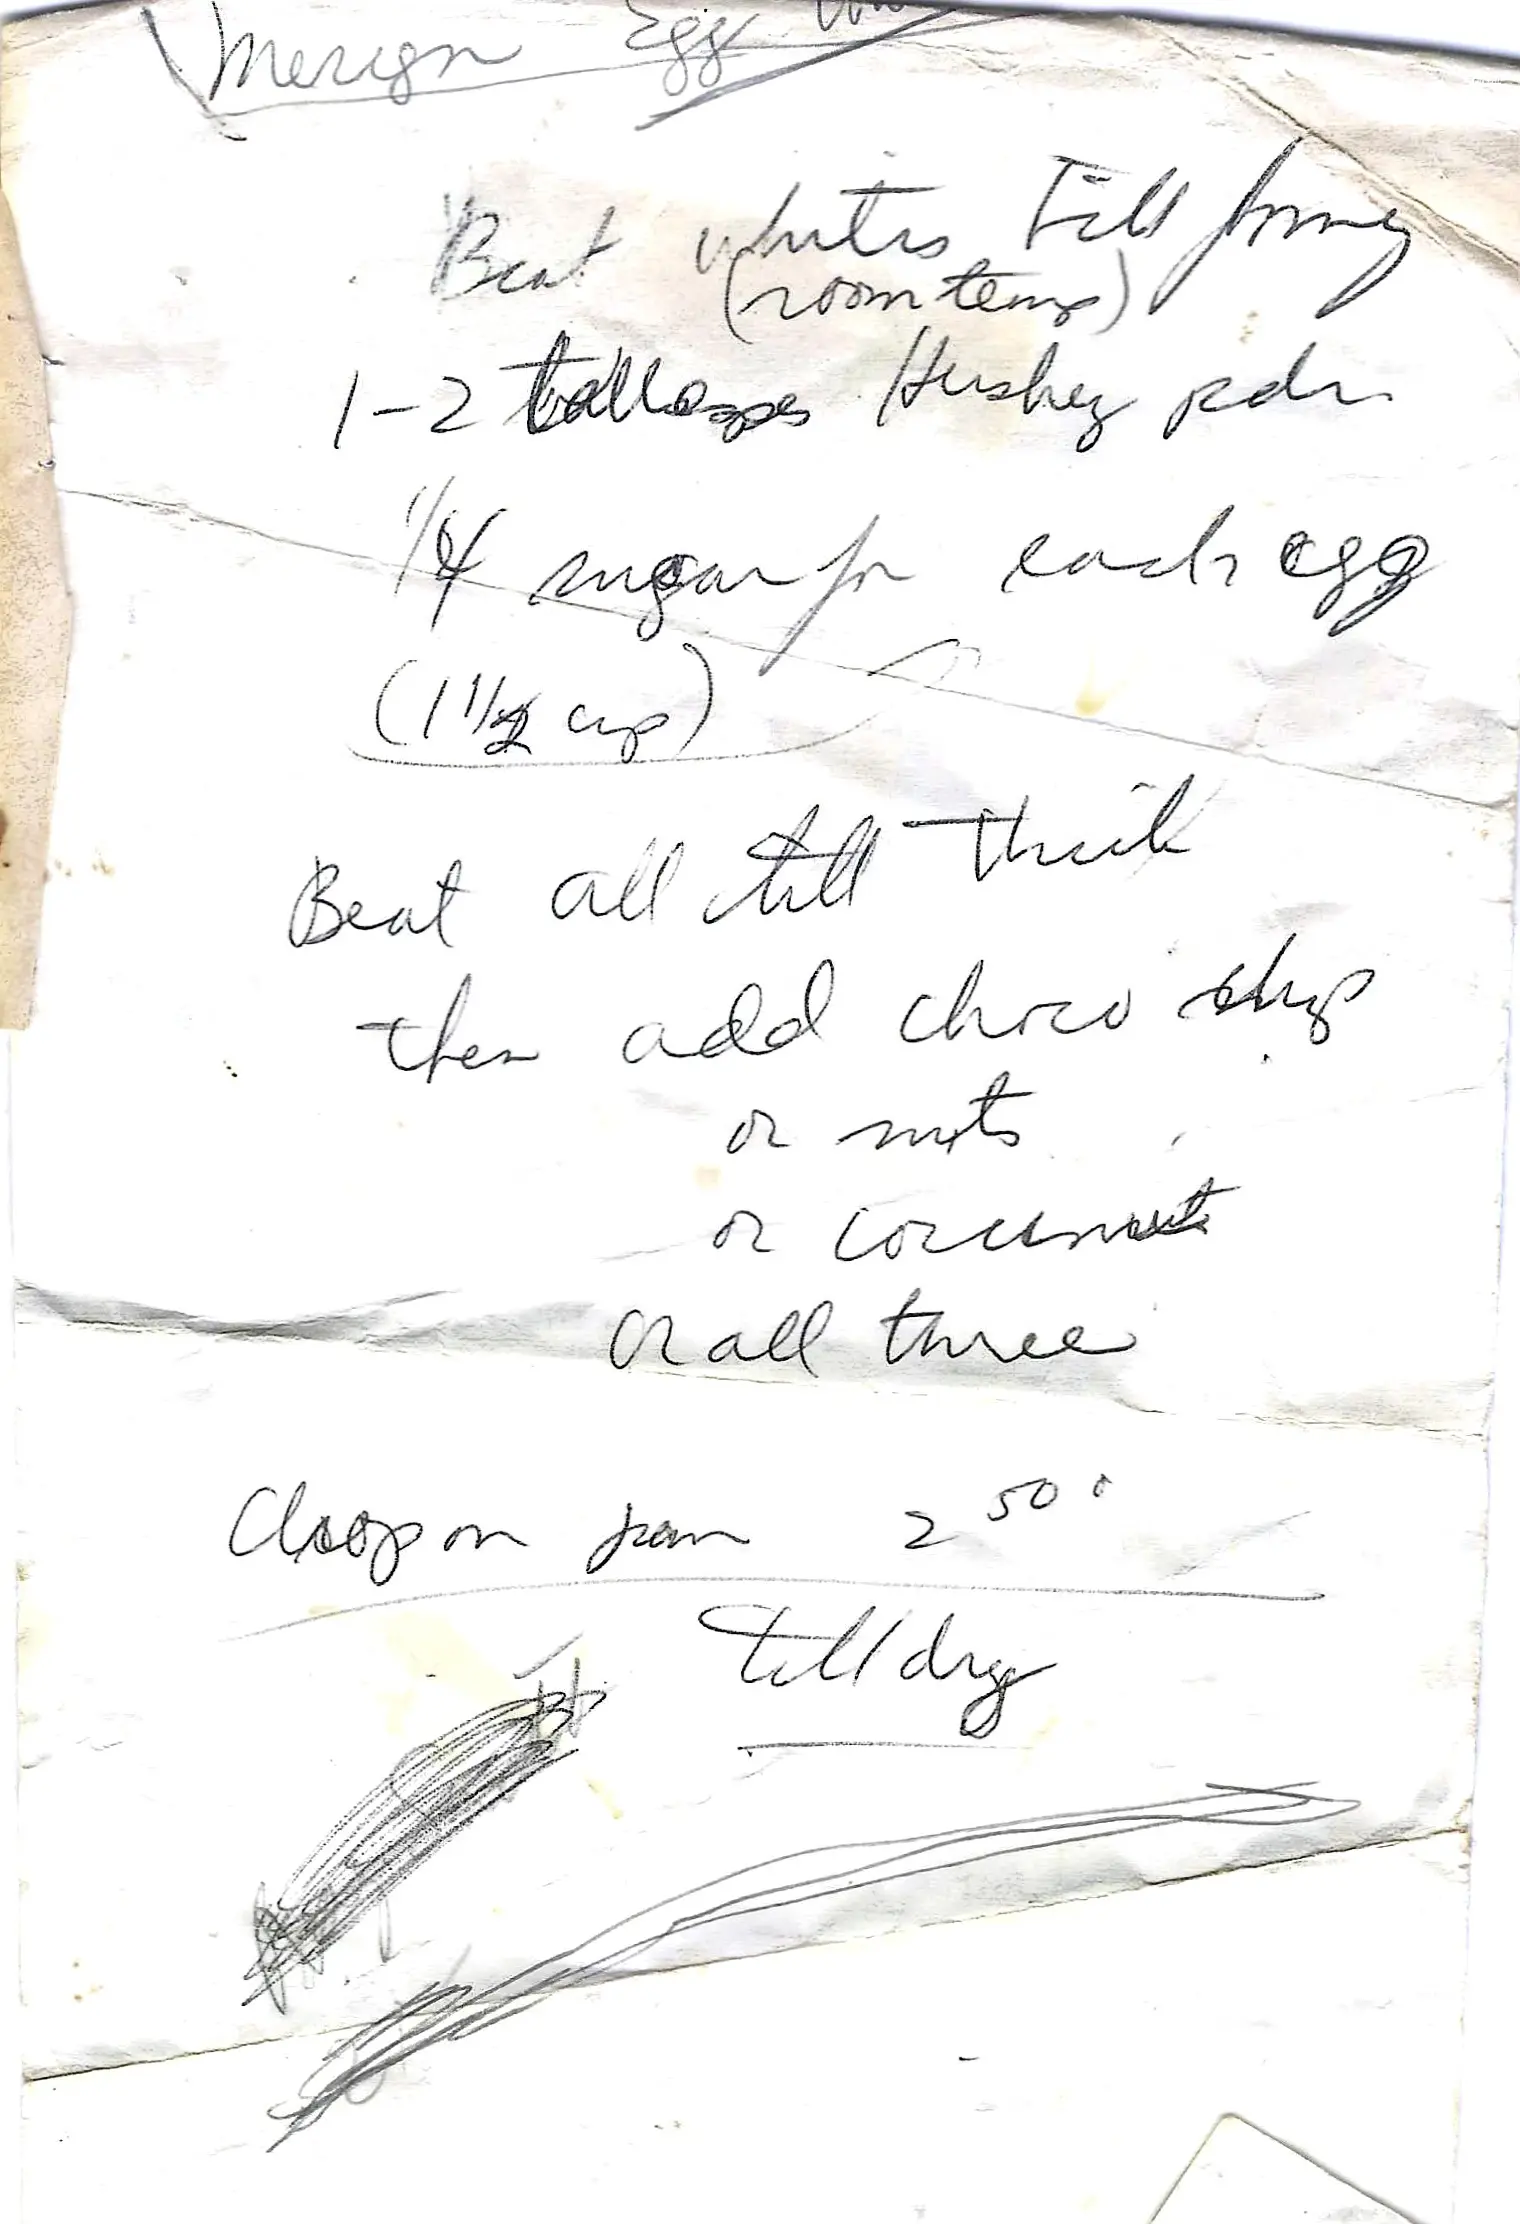 Merign Egg
Beat whites till foamy
(room temp)
1-2 tablesps Hershey pdr
1/4 sugar for each egg
(1 1/2 cup)
Beat all till thick
then add choco chips
or nuts
or coconut
or all three
Drop on pan 250°
till dry